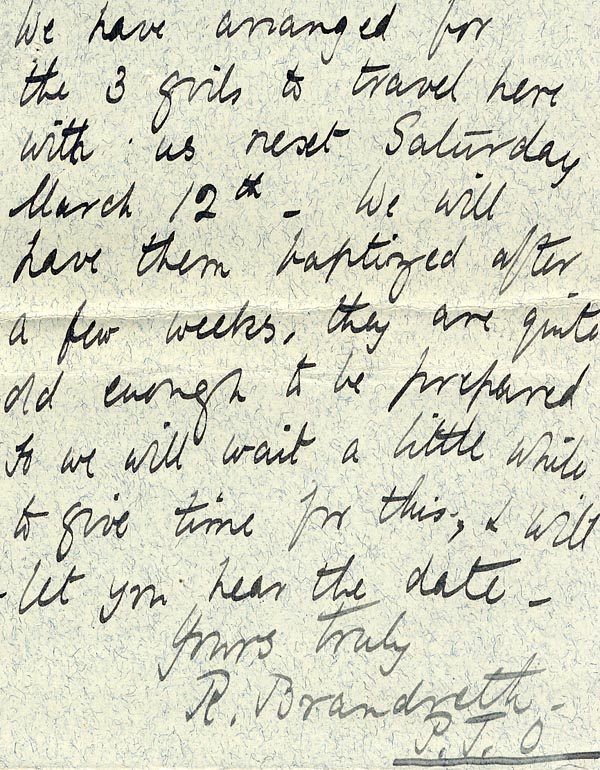 We have arranged for
the 3 girls to travel here
with us next Saturday
March 12th - We will
have them baptized after
a few weeks, they are quite
old enough to be prepared
so we will wait a little while
to give time for this, & will
let you hear the date -
Yours truly
R. Brandreth -
P.T.O